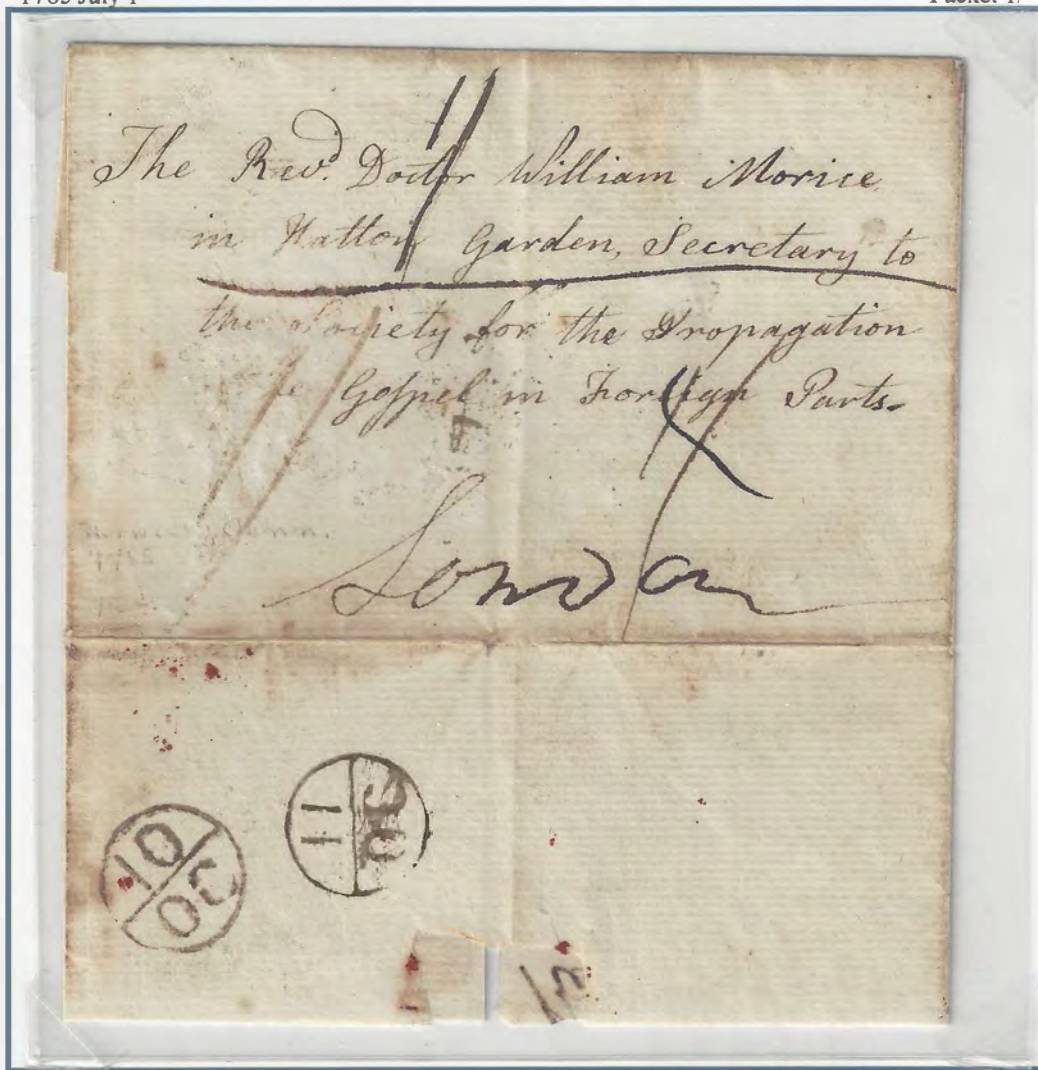 The Revd. Doctor William Morice
in Hatton Garden, Secretary to
the Society for the Propagation
Gospel in Foreign Parts.
London
10
OC
11